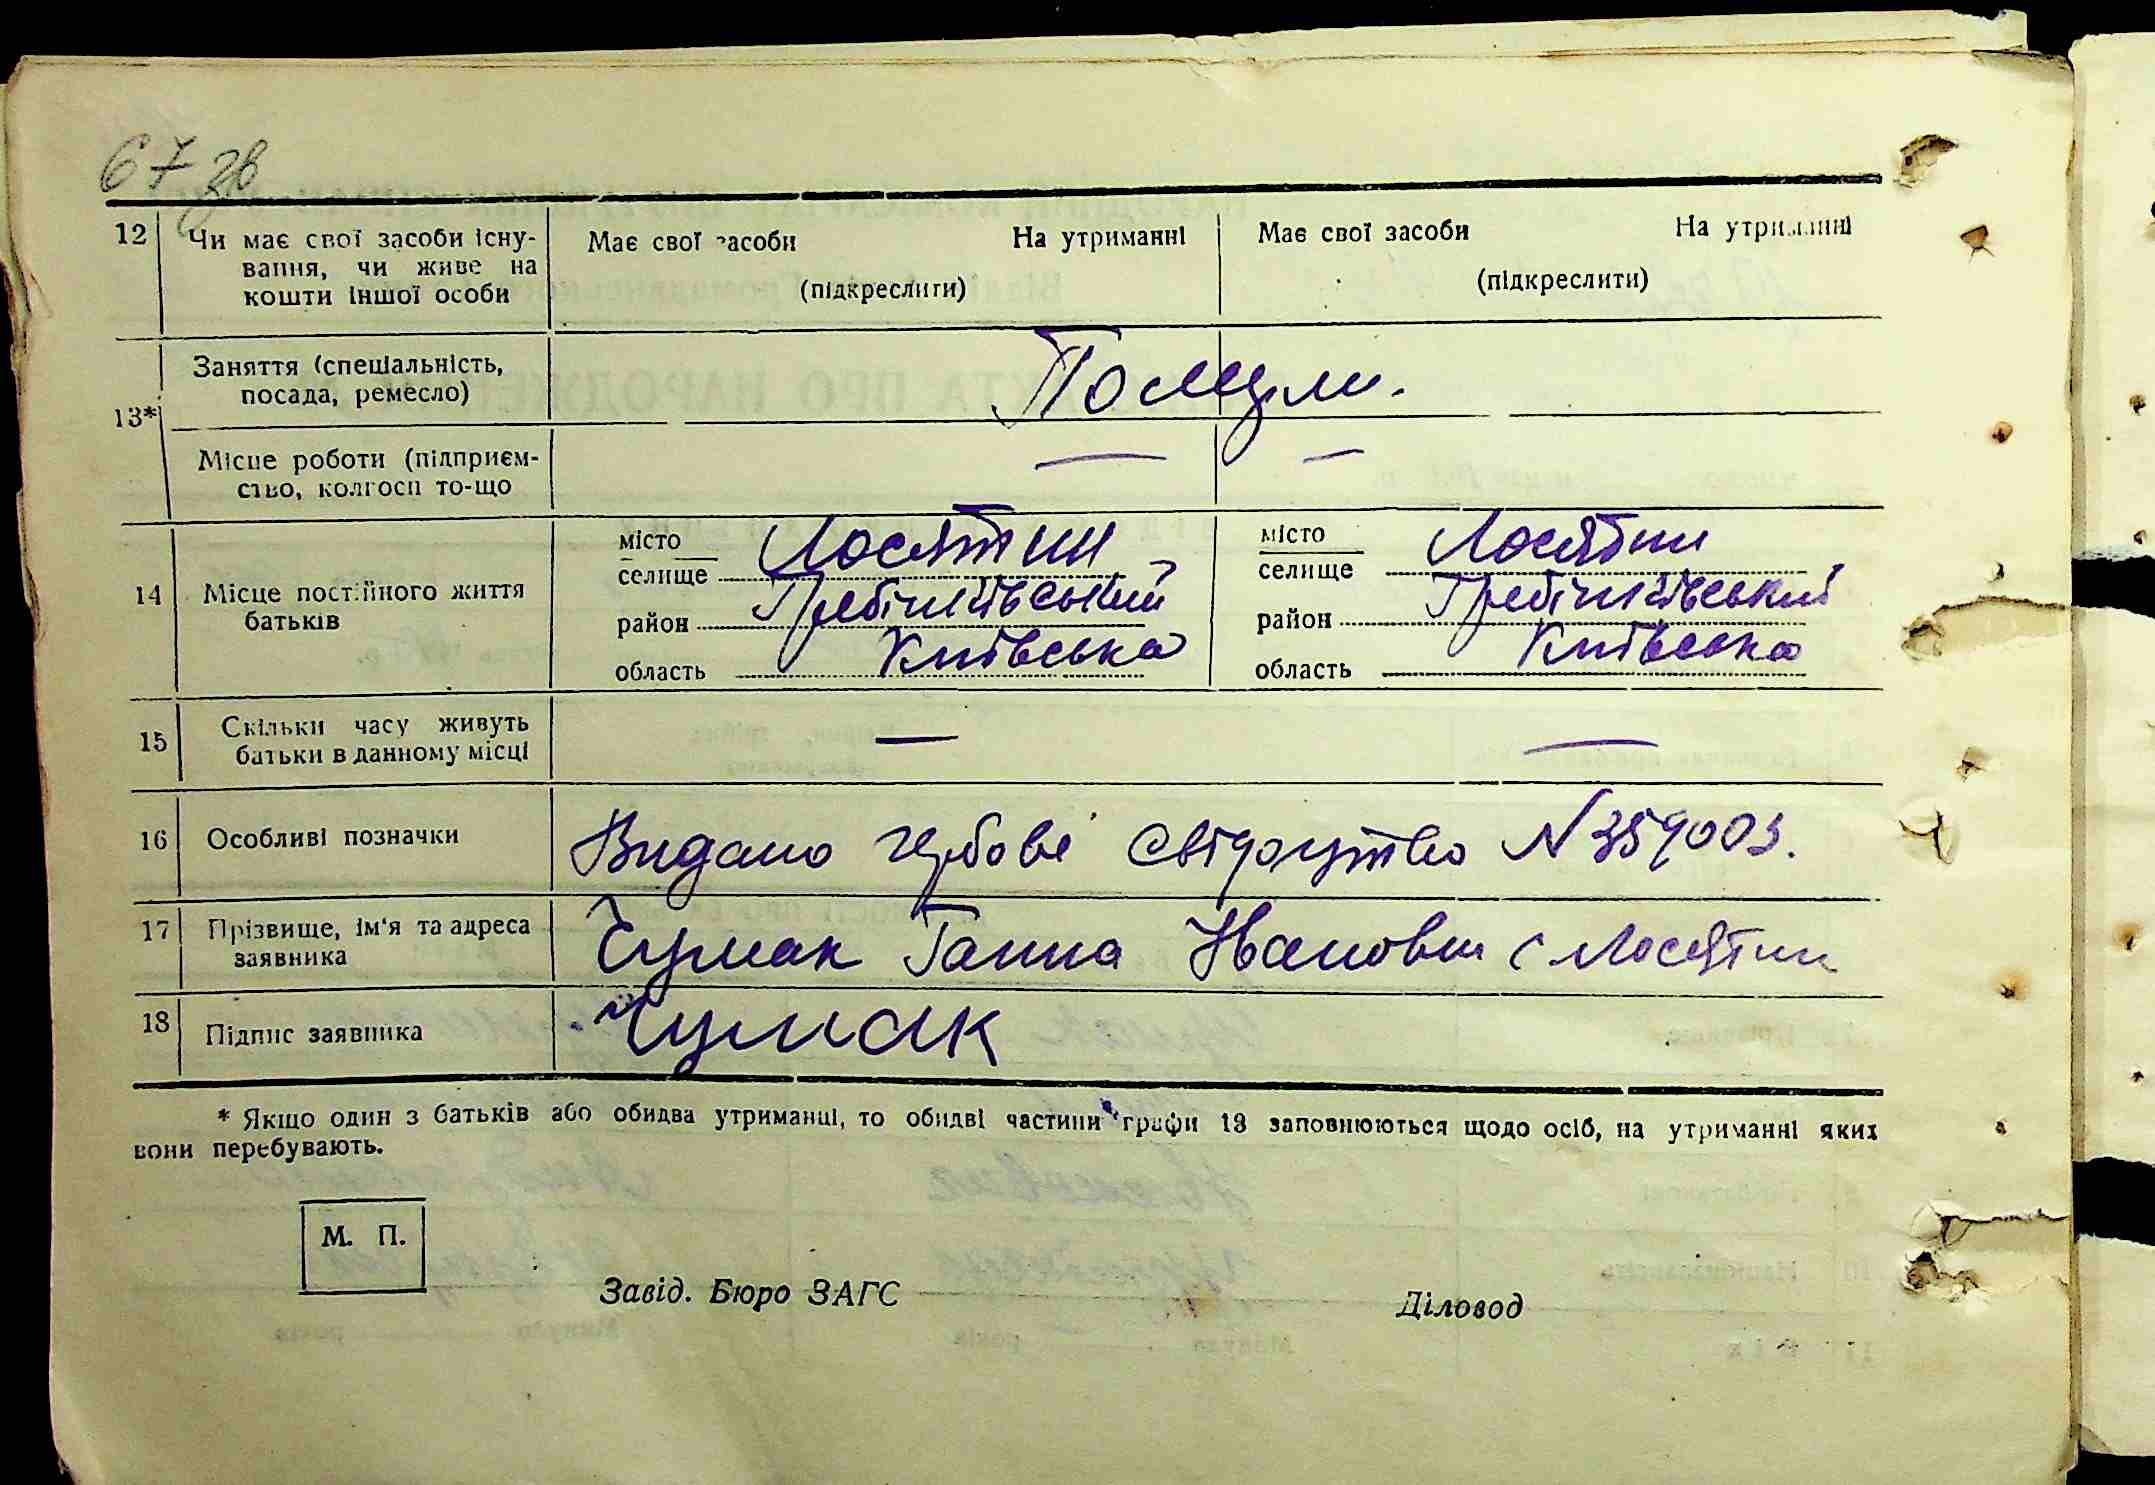 67 зв
12 Чи має свої засоби існу- Має свої засоби На утриманні Має свої засоби На утриманні
вання, чи живе на
кошти іншої особи (підкреслити) (підкреслити)
13* Заняття (спеціальність,
посада, ремесло)
Місце роботи (підприєм- — —
ство, колгосп то-що
14 Місце постійного життя батьків
місто Лосятин місто Лосятин
селище селище
район Гребінківський район Гребінківський
область Київська область Київська
15 Скільки часу живуть — —
батьки в данному місці
16 Особливі позначки Видано гербове свідоцтво N 359003.
17 Прізвище, ім'я та адреса Чумак Ганна Ивановна с Лосятин
заявника
18 Підпис заявника Чумак
* Якщо один з батьків або обидва утриманці, то обидві частини графи 13 заповнюються щодо осіб, на утриманні яких
вони перебувають.
М. П.
Завід. Бюро ЗАГС Діловод